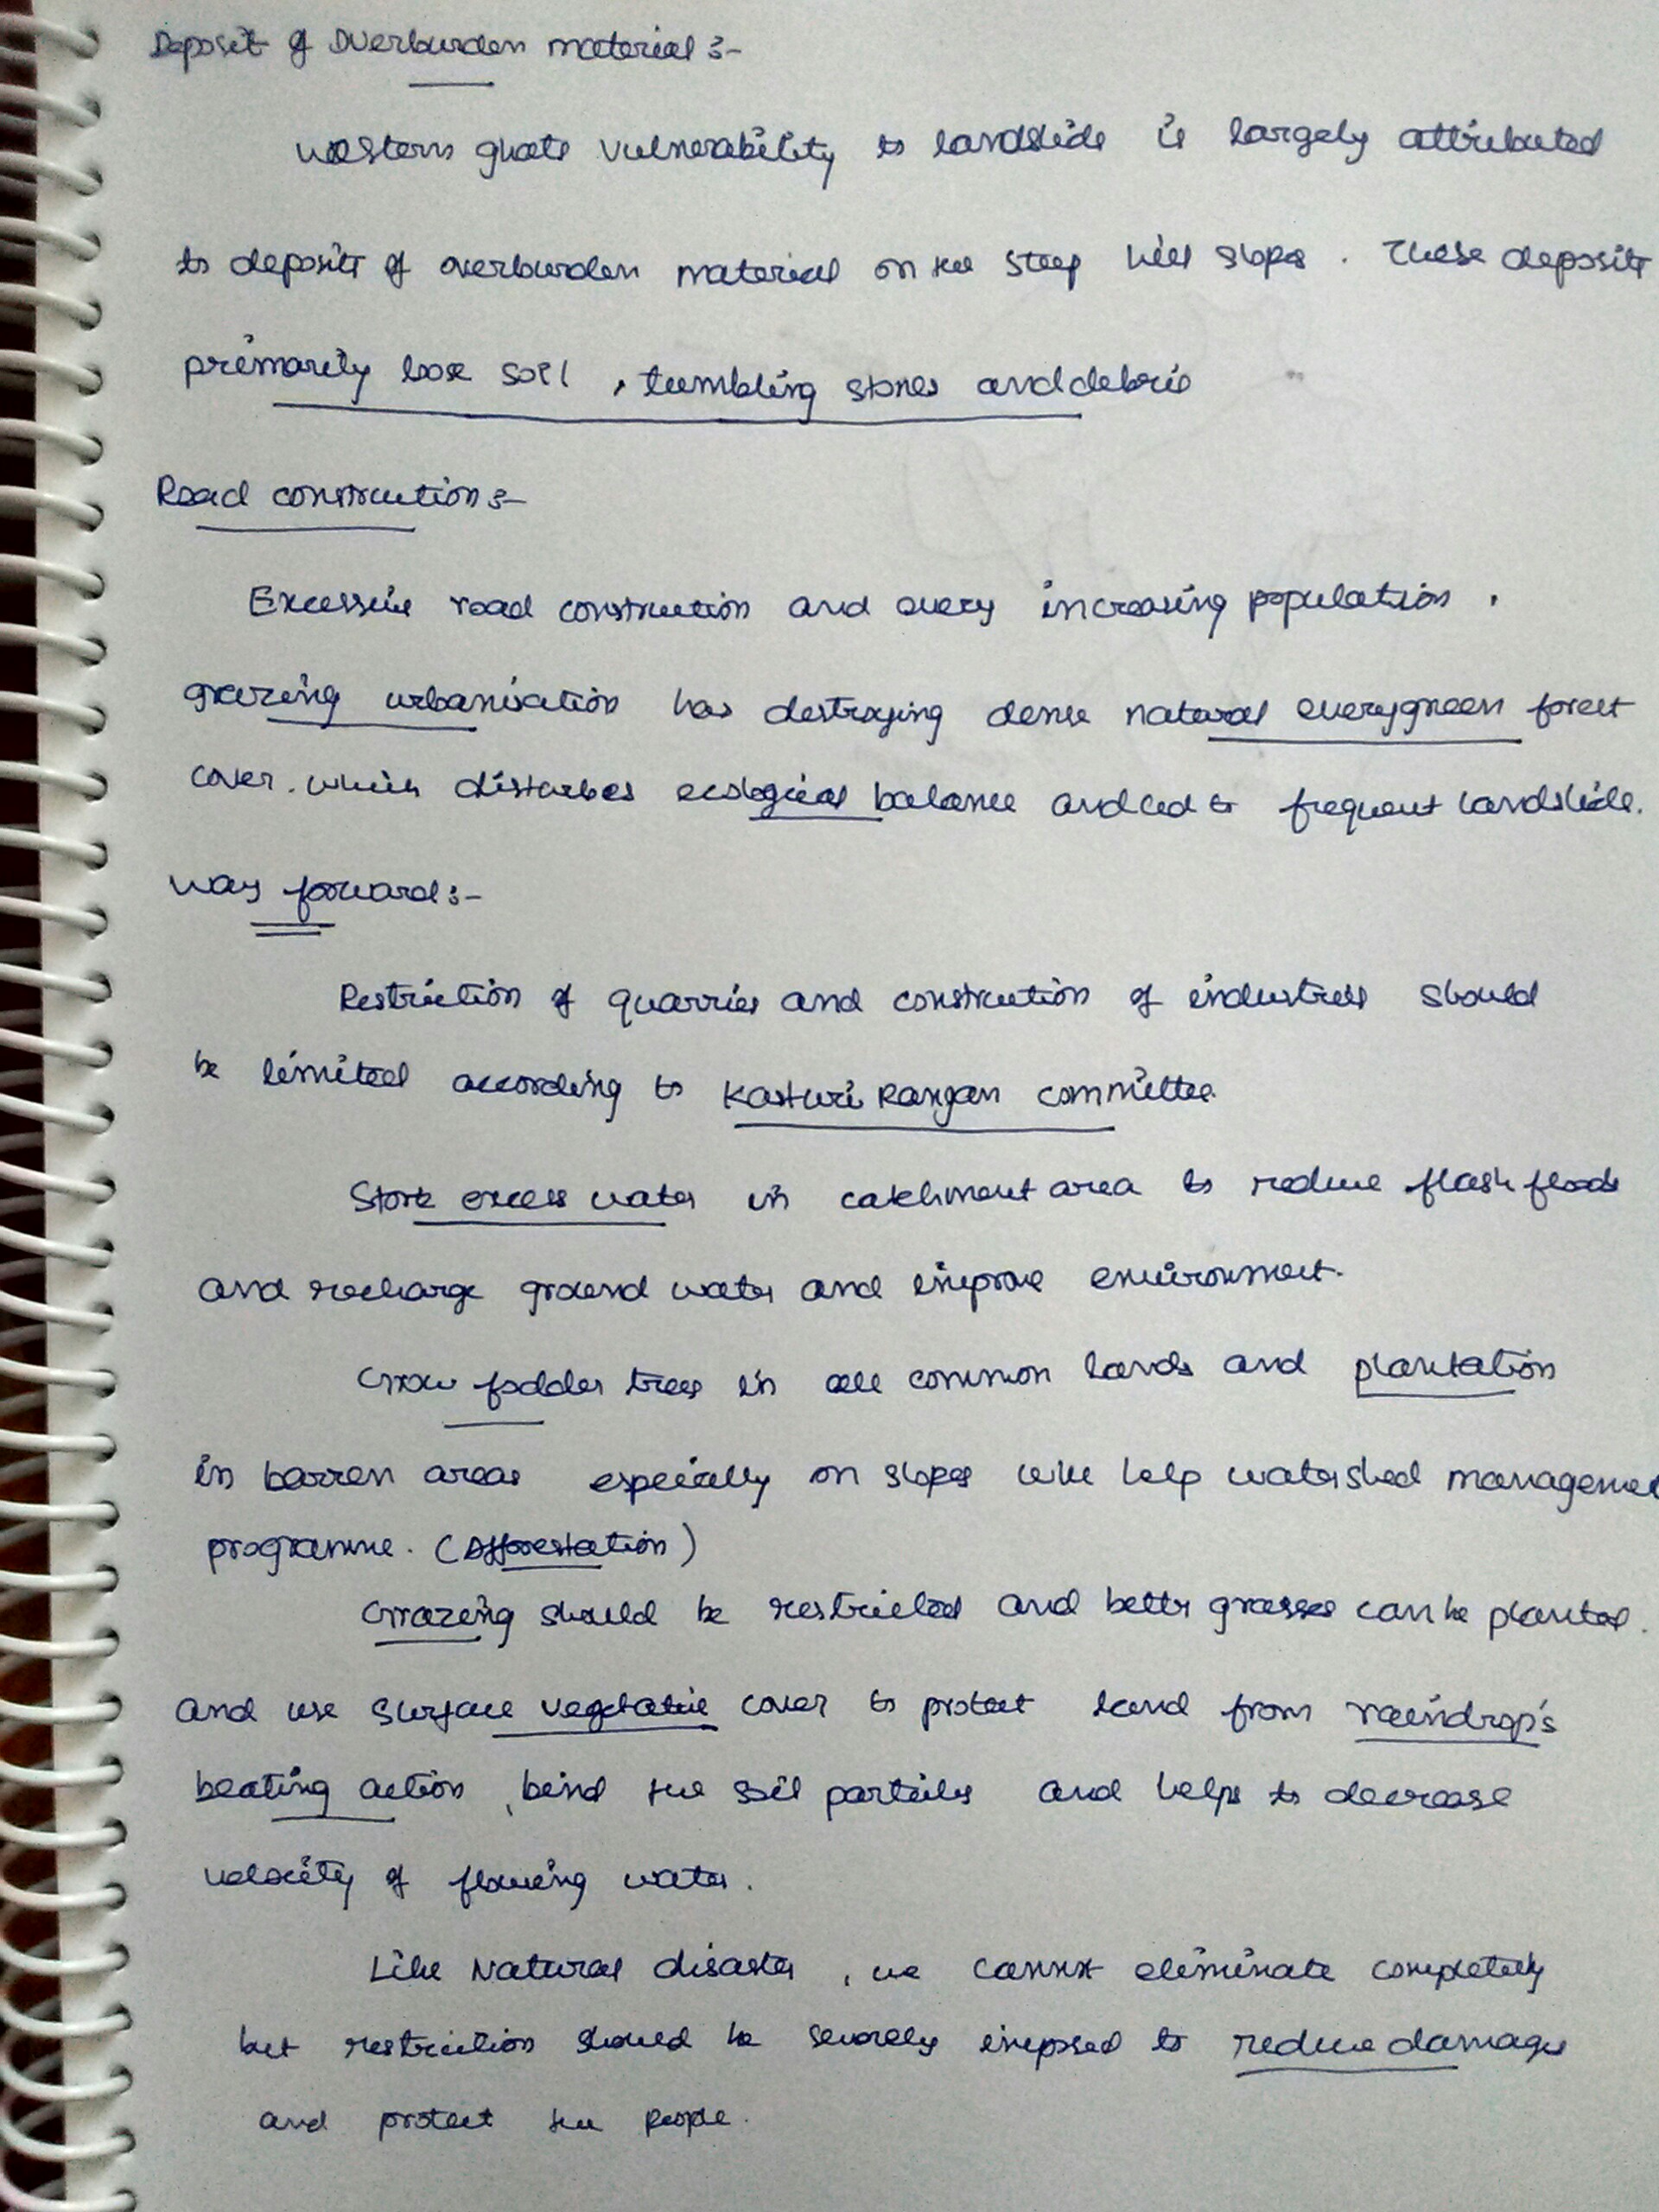 Deposit of Overburden material :-
Western ghats vulnerability to landslide is largely attributed
to deposits of overburden material on the steep hill slopes . These deposits
primarily lose soil , tumbling stones and debris
Road construction :-
Excessive road construction and every increasing population ,
grazing urbanisation has destroying dense natural everygreen forest
cover . which disturbes ecological balance and led to frequent landslide.
Way forward :-
Restriction of quarries and construction of industries should
be limited according to Kasturi Rangan committee.
Store excess water in catchment area to reduce flash floods
and recharge ground water and improve environment.
Grow fodder trees in all common lands and plantation
in barren areas especially on slopes will help watershed management
programme. (Afforestation)
Grazing should be restricted and better grasses can be planted .
and use surface vegetative cover to protect land from raindrop's
beating action , bind the soil particles and helps to decrease
velocity of flowing water .
Like Natural disaster , we cannot eliminate completely
but restriction should be severely imposed to reduce damage
and protect the people .